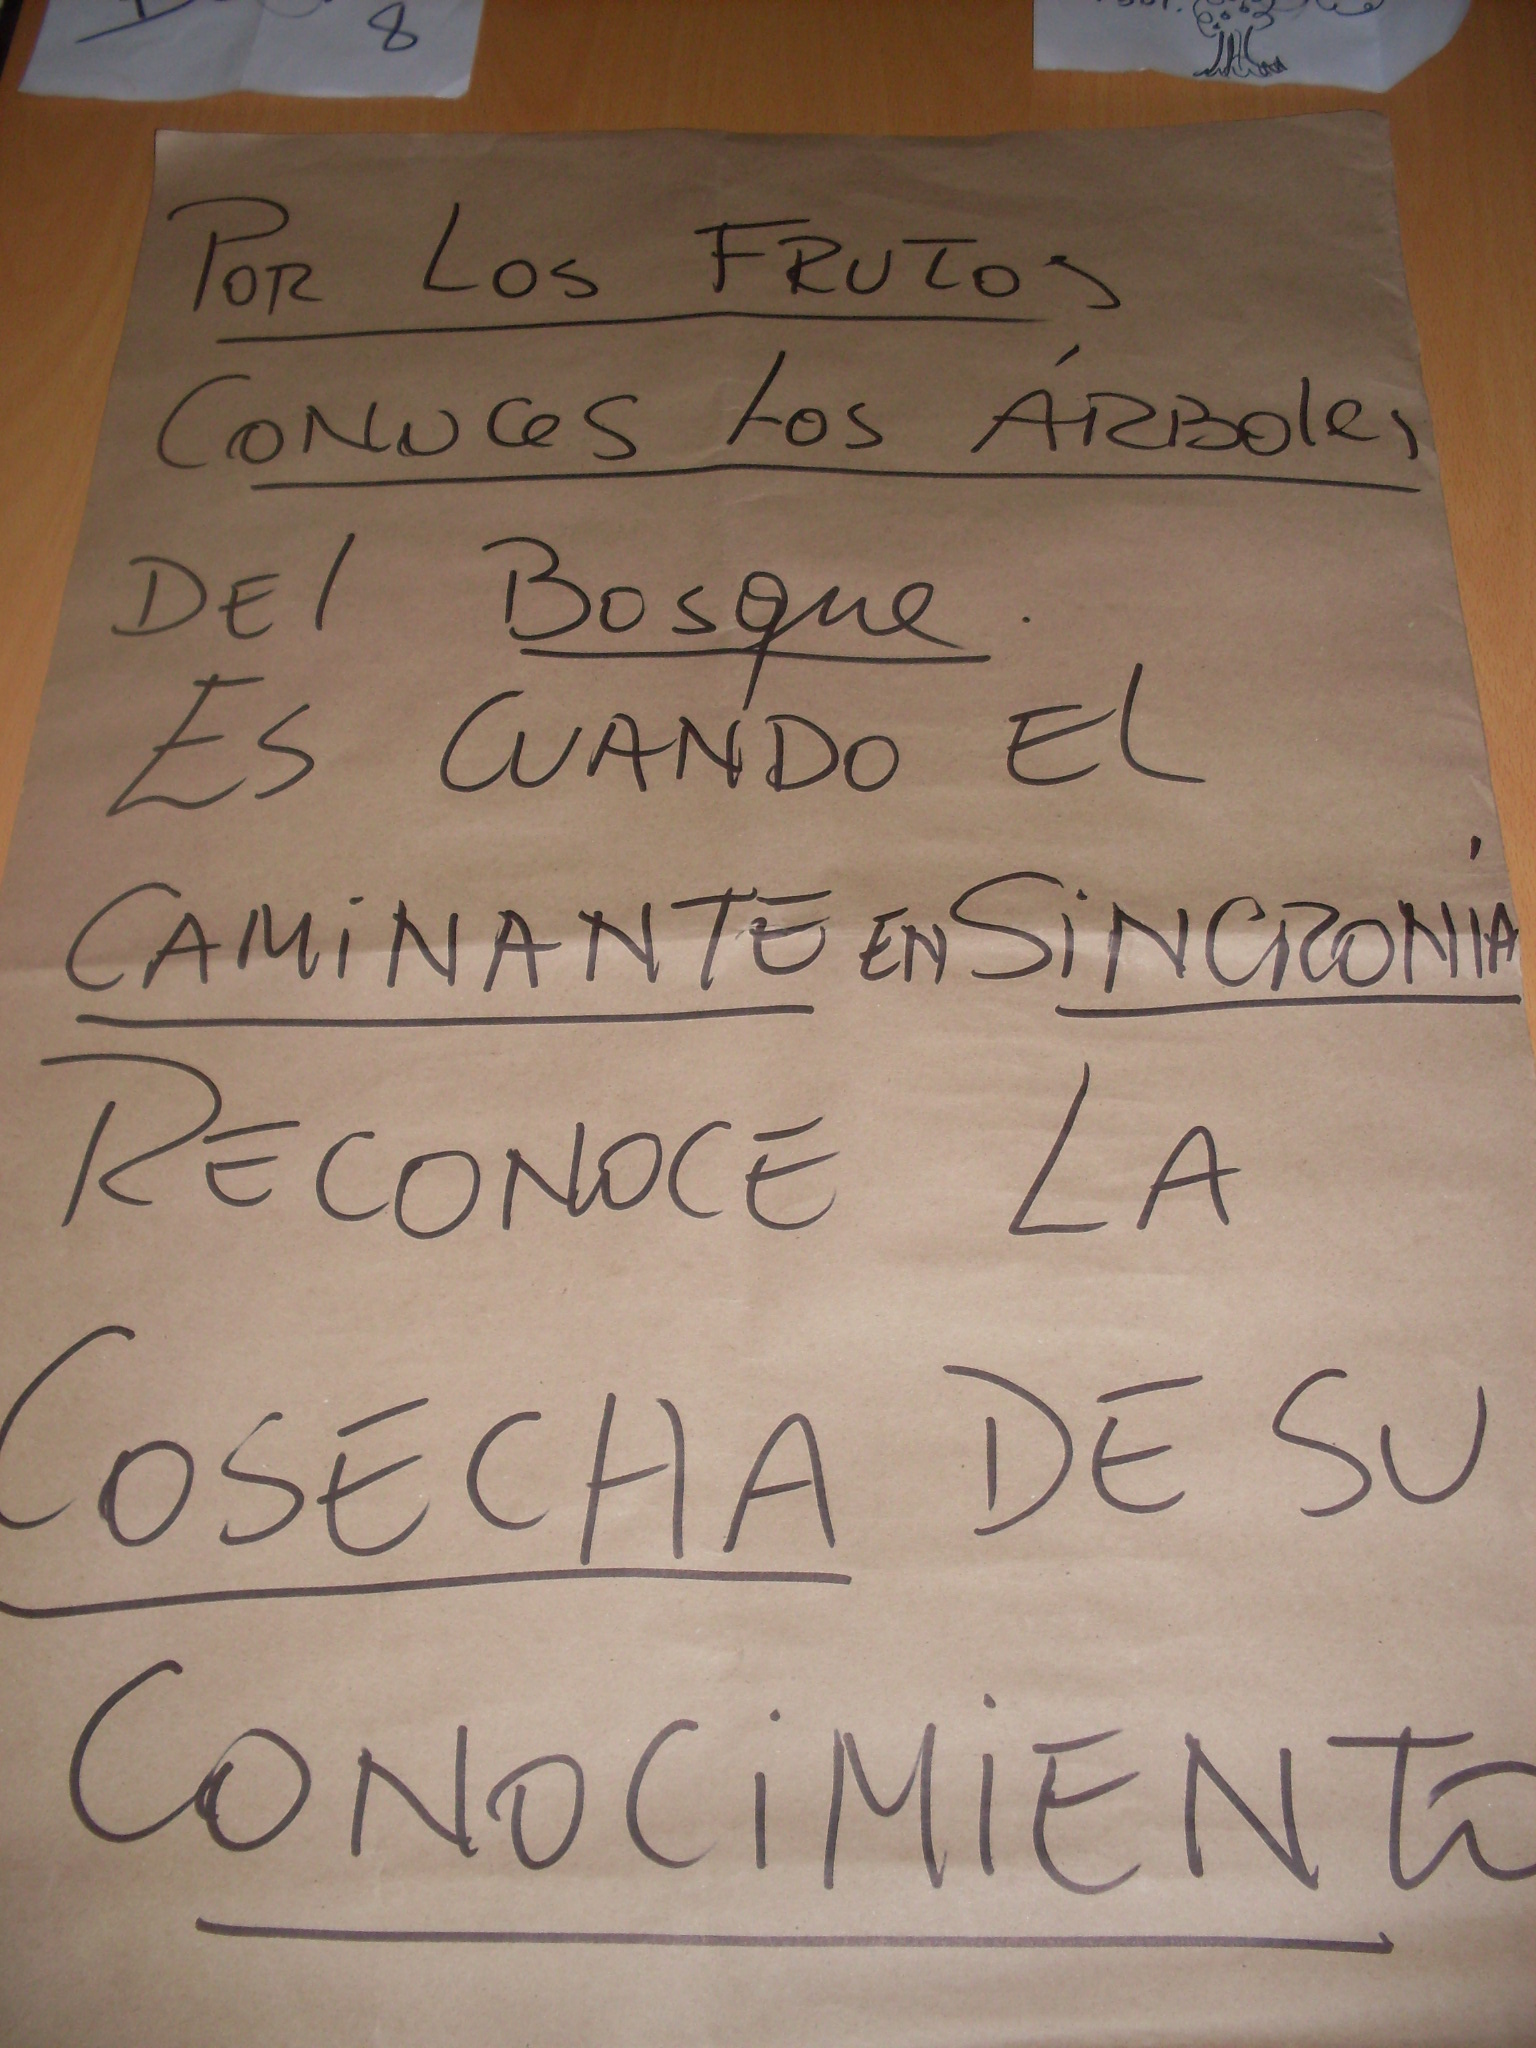 8
POR LOS FRUTOS
CONOCES LOS ÁRBOLES
DEL BOSQUE.
ES CUANDO EL
CAMINANTE EN SINCRONÍA
RECONOCE LA
COSECHA DE SU
CONOCIMIENTO